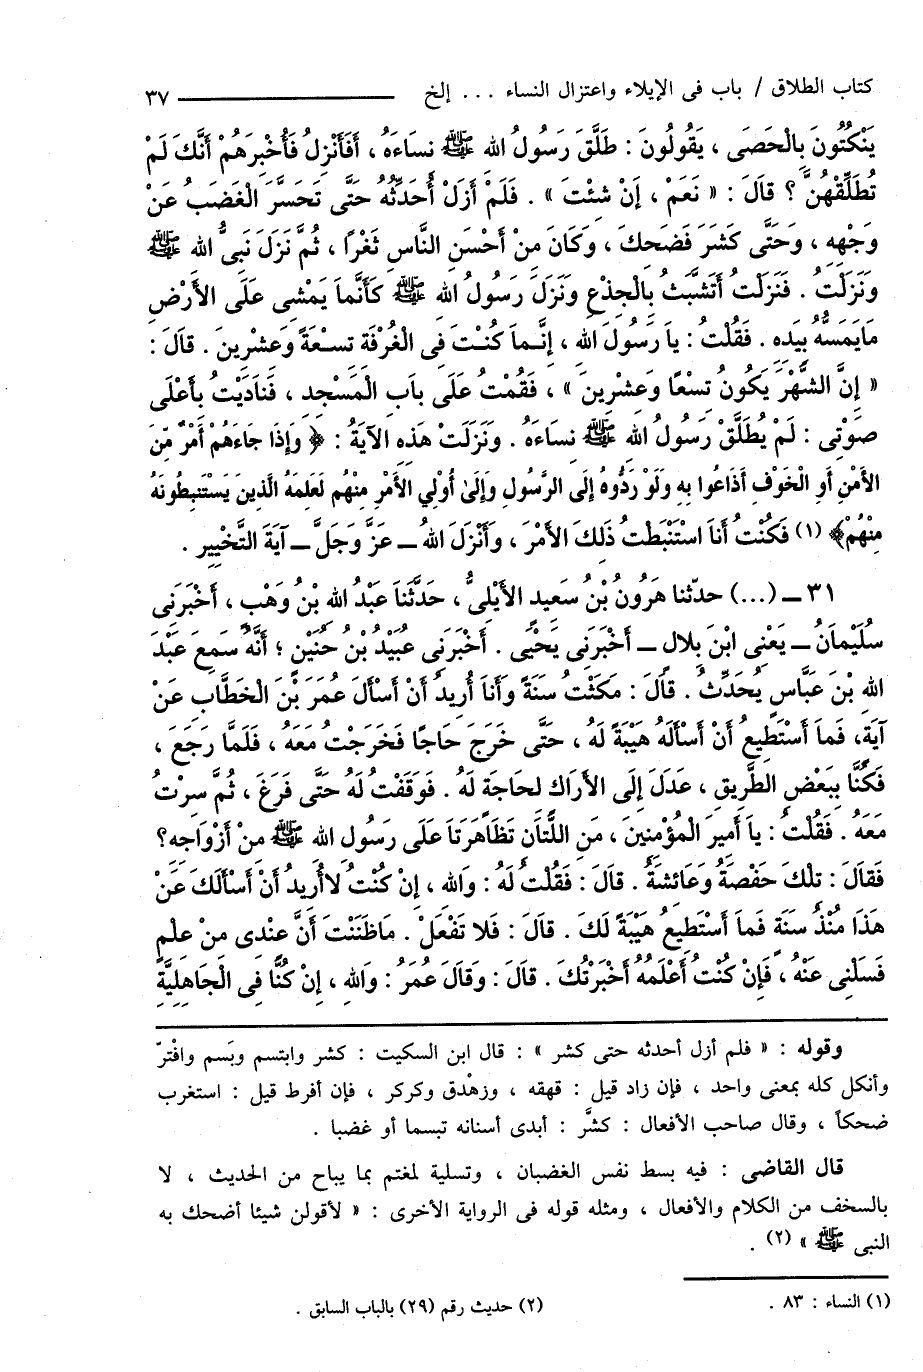 كتاب الطلاق / باب فى الإيلاء واعتزال النساء ... إلخ ـــــــــ ٣٧
يَنْكُتُونَ بِالْحَصَى ، يَقُولُونَ : طَلَّقَ رَسُولُ اللهِ ﷺ نِسَاءَهُ ، أَفَأَنْزِلُ فَأُخْبِرَهُمْ أَنَّكَ لَمْ
تُطَلِّقْهُنَّ ؟ قَالَ : « نَعَمْ ، إِنْ شِئْتَ » . فَلَمْ أَزَلْ أُحَدِّثُهُ حَتَّى تَحَسَّرَ الْغَضَبُ عَنْ
وَجْهِهِ ، وَحَتَّى كَشَرَ فَضَحِكَ ، وَكَانَ مِنْ أَحْسَنِ النَّاسِ ثَغْرًا ، ثُمَّ نَزَلَ نَبِىُّ اللهِ ﷺ
وَنَزَلْتُ . فَنَزَلْتُ أَتَشَبَّثُ بِالْجِذْعِ وَنَزَلَ رَسُولُ اللهِ ﷺ كَأَنَّمَا يَمْشِى عَلَى الأَرْضِ
مَايَمَسُّهُ بِيَدِهِ . فَقُلْتُ : يَا رَسُولَ اللهِ ، إِنَّمَا كُنْتَ فِى الْغُرْفَةِ تِسْعَةً وَعِشْرِينَ . قَالَ :
« إِنَّ الشَّهْرَ يَكُونُ تِسْعًا وَعِشْرِينَ » ، فَقُمْتُ عَلَى بَابِ الْمَسْجِدِ ، فَنَادَيْتُ بِأَعْلَى
صَوْتِى : لَمْ يُطَلِّقْ رَسُولُ اللهِ ﷺ نِسَاءَهُ . وَنَزَلَتْ هَذِهِ الآيَةُ : ﴿ وَإِذَا جَاءَهُمْ أَمْرٌ مِّنَ
الأَمْنِ أَوِ الْخَوْفِ أَذَاعُوا بِهِ وَلَوْ رَدُّوهُ إِلَى الرَّسُولِ وَإِلَىٰ أُولِي الأَمْرِ مِنْهُمْ لَعَلِمَهُ الَّذِينَ يَسْتَنبِطُونَهُ
مِنْهُمْ﴾ (١) فَكُنْتُ أَنَا اسْتَنْبَطْتُ ذَلِكَ الأَمْرَ ، وَأَنْزَلَ اللهُ ــ عَزَّ وَجَلَّ ــ آيَةَ التَّخْيِيرِ .
٣١ ــ (...) حدّثنا هَرُونُ بْنُ سَعِيدٍ الأَيْلِىُّ ، حَدَّثَنَا عَبْدُ اللهِ بْنُ وَهْبٍ ، أَخْبَرَنِى
سُلَيْمَانُ ــ يَعْنِى ابْنَ بِلالٍ ــ أَخْبَرَنِى يَحْيَى . أَخْبَرَنِى عُبَيْدُ بْنُ حُنَيْنٍ ؛ أَنَّهُ سَمِعَ عَبْدَ
اللهِ بْنَ عَبَّاسٍ يُحَدِّثُ . قَالَ : مَكَثْتُ سَنَةً وَأَنَا أُرِيدُ أَنْ أَسْأَلَ عُمَرَ بْنَ الْخَطَّابِ عَنْ
آيَةٍ، فَمَا أَسْتَطِيعُ أَنْ أَسْأَلَهُ هَيْبَةً لَهُ ، حَتَّى خَرَجَ حَاجًا فَخَرَجْتُ مَعَهُ ، فَلَمَّا رَجَعَ ،
فَكُنَّا بِبَعْضِ الطَّرِيقِ ، عَدَلَ إِلَى الأَرَاكِ لِحَاجَةٍ لَهُ . فَوَقَفْتُ لَهُ حَتَّى فَرَغَ ، ثُمَّ سِرْتُ
مَعَهُ . فَقُلْتُ : يَا أَمِيرَ الْمُؤْمِنِينَ ، مَنِ اللَّتَانِ تَظَاهَرَتَا عَلَى رَسُولِ اللهِ ﷺ مِنْ أَزْوَاجِهِ؟
فَقَالَ : تِلْكَ حَفْصَةُ وَعَائِشَةُ . قَالَ : فَقُلْتُ لَهُ : وَاللهِ ، إِنْ كُنْتُ لأُرِيدُ أَنْ أَسْأَلَكَ عَنْ
هَذَا مُنْذُ سَنَةٍ فَمَا أَسْتَطِيعُ هَيْبَةً لَكَ . قَالَ : فَلا تَفْعَلْ . مَاظَنَنْتَ أَنَّ عِنْدِى مِنْ عِلْمٍ
فَسَلْنِى عَنْهُ ، فَإِنْ كُنْتُ أَعْلَمُهُ أَخْبَرْتُكَ . قَالَ : وَقَالَ عُمَرُ : وَاللهِ ، إِنْ كُنَّا فِى الْجَاهِلِيَّةِ
وقوله : « فلم أزل أحدثه حتى كشر » : قال ابن السكيت : كشر وابتسم وبَسم وافْترّ
وأنكل كله بمعنى واحد ، فإن زاد قيل : قهقه ، وزهْدق وكركر ، فإن أفرط قيل : استغرب
ضحكاً ، وقال صاحب الأفعال : كشَّر : أبدى أسنانه تبسما أو غضبا .
قال القاضى : فيه بسط نفس الغضبان ، وتسلية لمغتم بما يباح من الحديث ، لا
بالسخف من الكلام والأفعال ، ومثله قوله فى الرواية الأخرى : « لأقولن شيئا أضحك به
النبى ﷺ » (٢) .
(١) النساء : ٨٣ .
(٢) حديث رقم (٢٩) بالباب السابق .